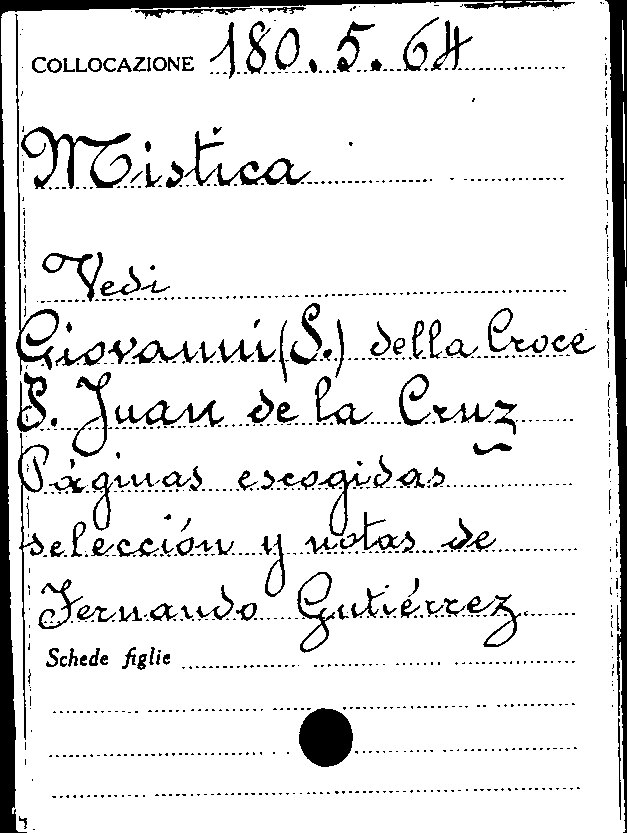 COLLOCAZIONE 180.5.64
Mistica
Vedi
Giovanni (S.) della Croce
S. Juan de la Cruz
Páginas escogidas
selección y notas de
Fernando Gutiérrez
Schede figlie